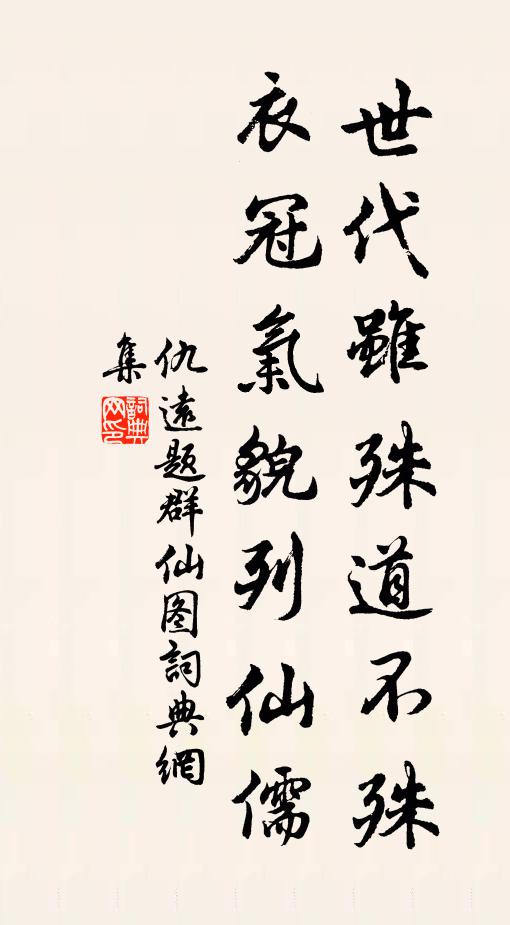 世代雖殊道不殊
衣冠氣貌列仙儒
仇遠題群仙图詞典網
集
詞典
网印